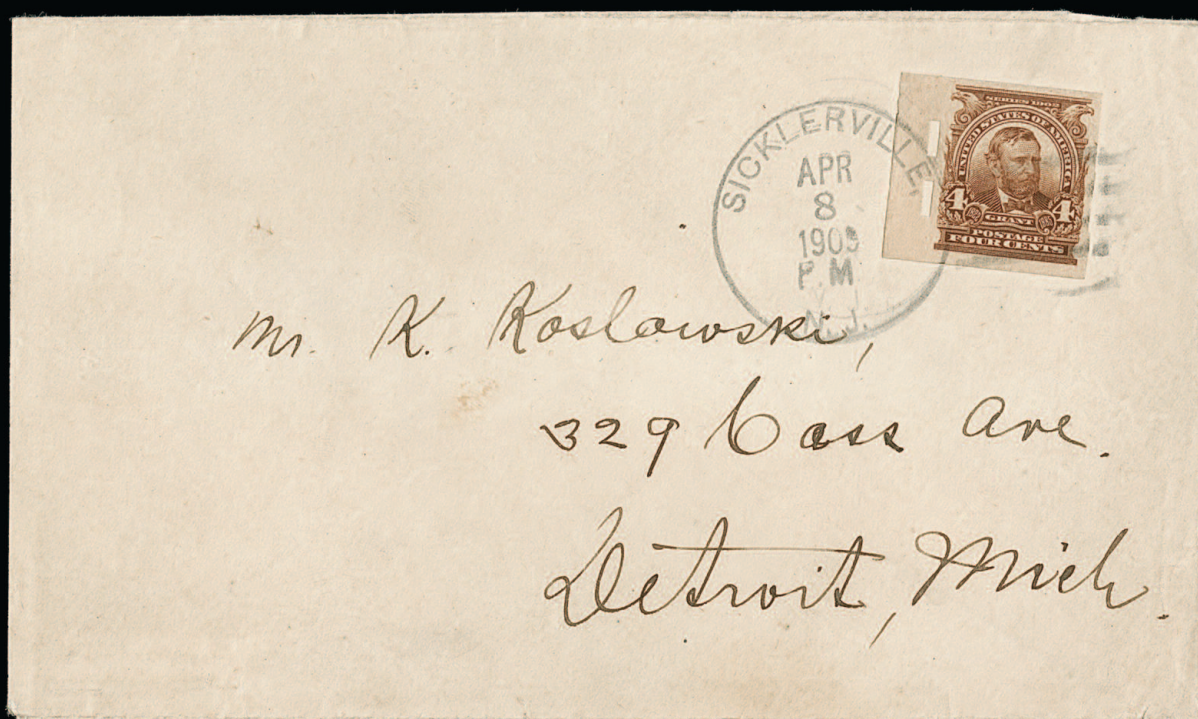 SICKLERVILLE,
APR
8
1909
P M
N.J.
SERIES 1902
UNITED STATES OF AMERICA
4 4
GRANT
POSTAGE
FOUR CENTS
Mr. K. Koslowski,
329 Cass Ave.
Detroit, Mich.